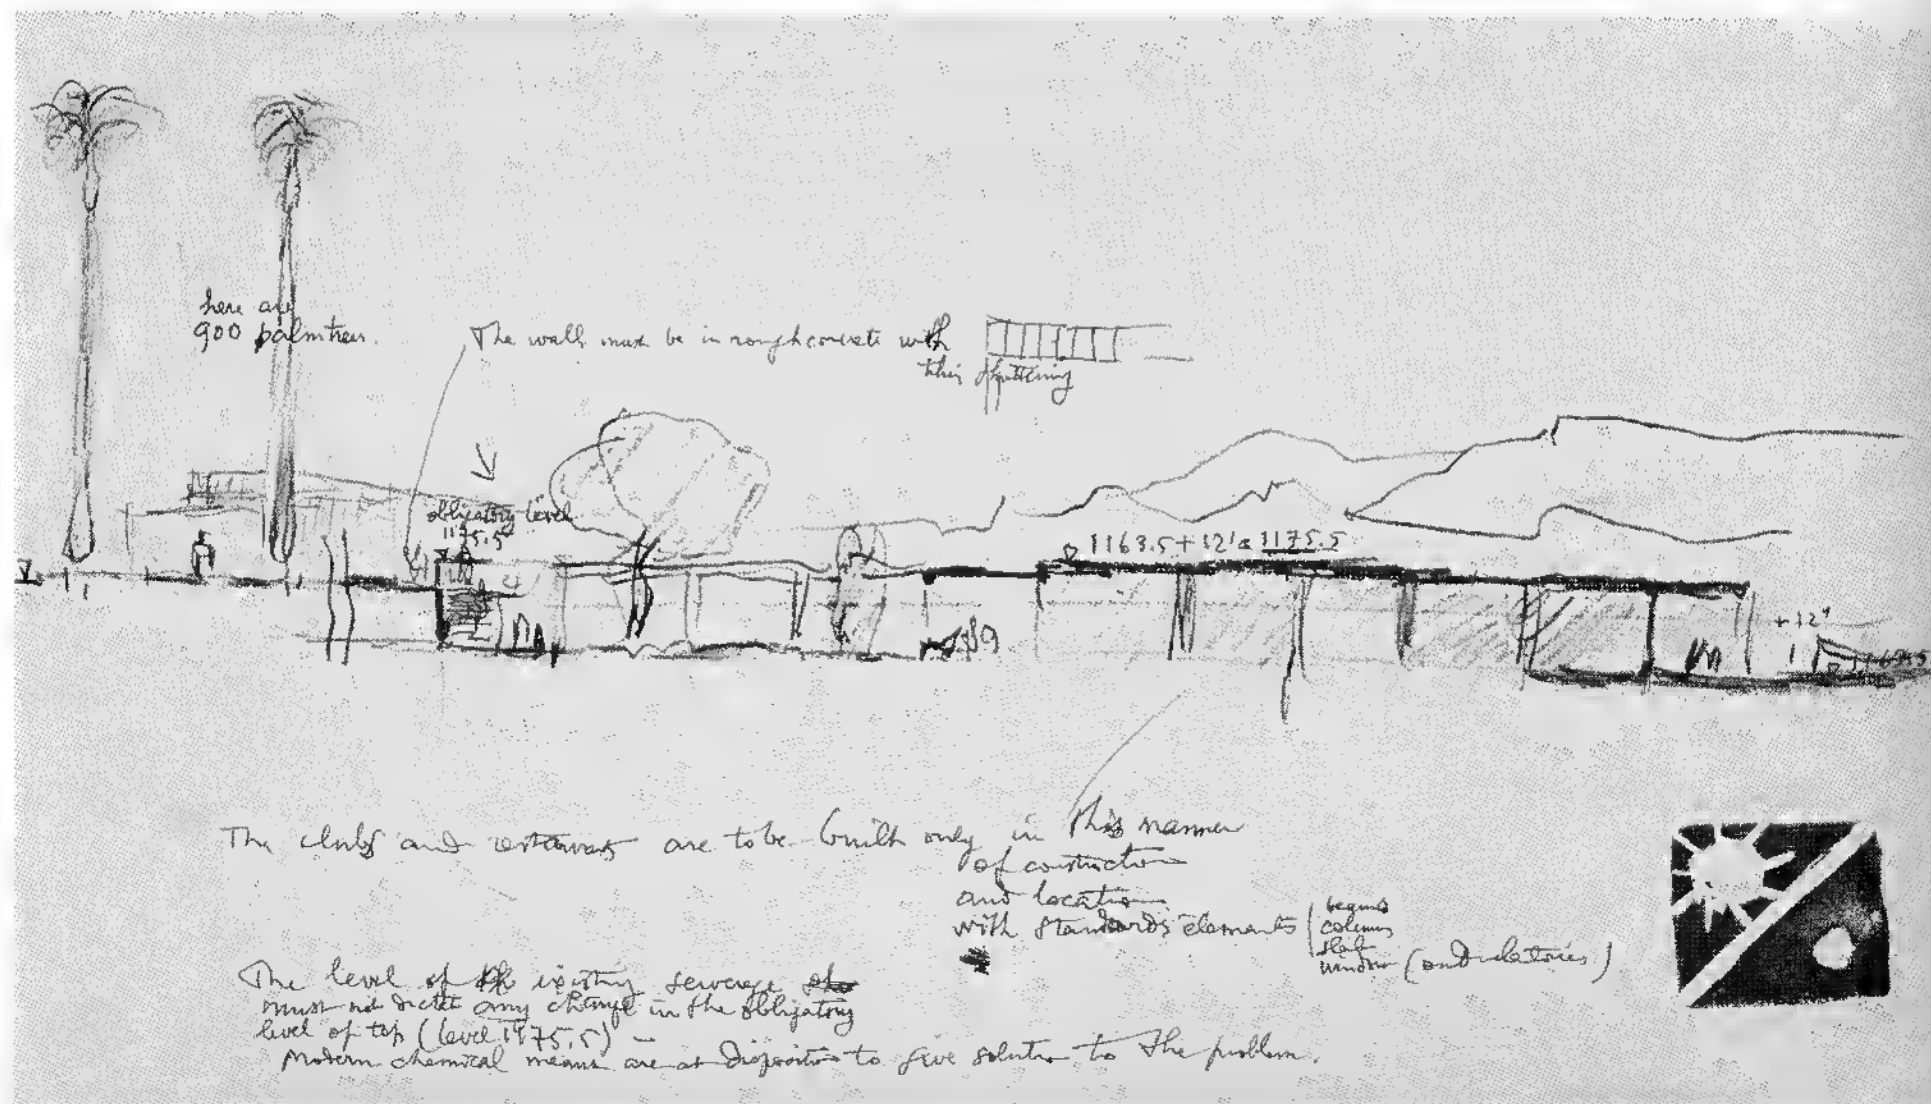 here are
900 palmtrees.
The wall must be in rough concrete with
this shuttering
obligatory level
1175.5
1163.5 + 12' = 1175.5
+ 12'
The clubs and restaurants are to be built only in this manner
of construction
and location
with standards elements
beams
columns
slab
window (ondulatoires)
The level of the existing sewerage
must not dictate any change in the obligatory
level of top (level 1175.5)
Modern chemical means are at disposition to give solution to the problem.